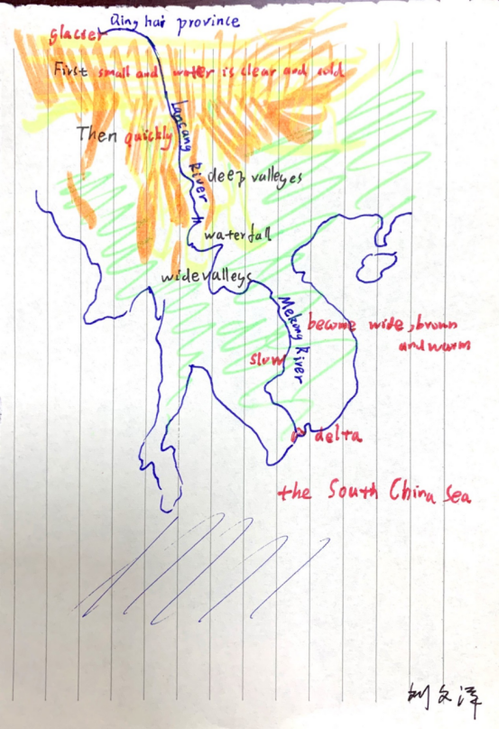 Qing hai province
glacier
First small and water is clear and cold
Lancang River
Then quickly
deep valleyes
waterfall
wide valleys
Mekong River
become wide, brown
and warm
slow
delta
the South China Sea
刘文泽